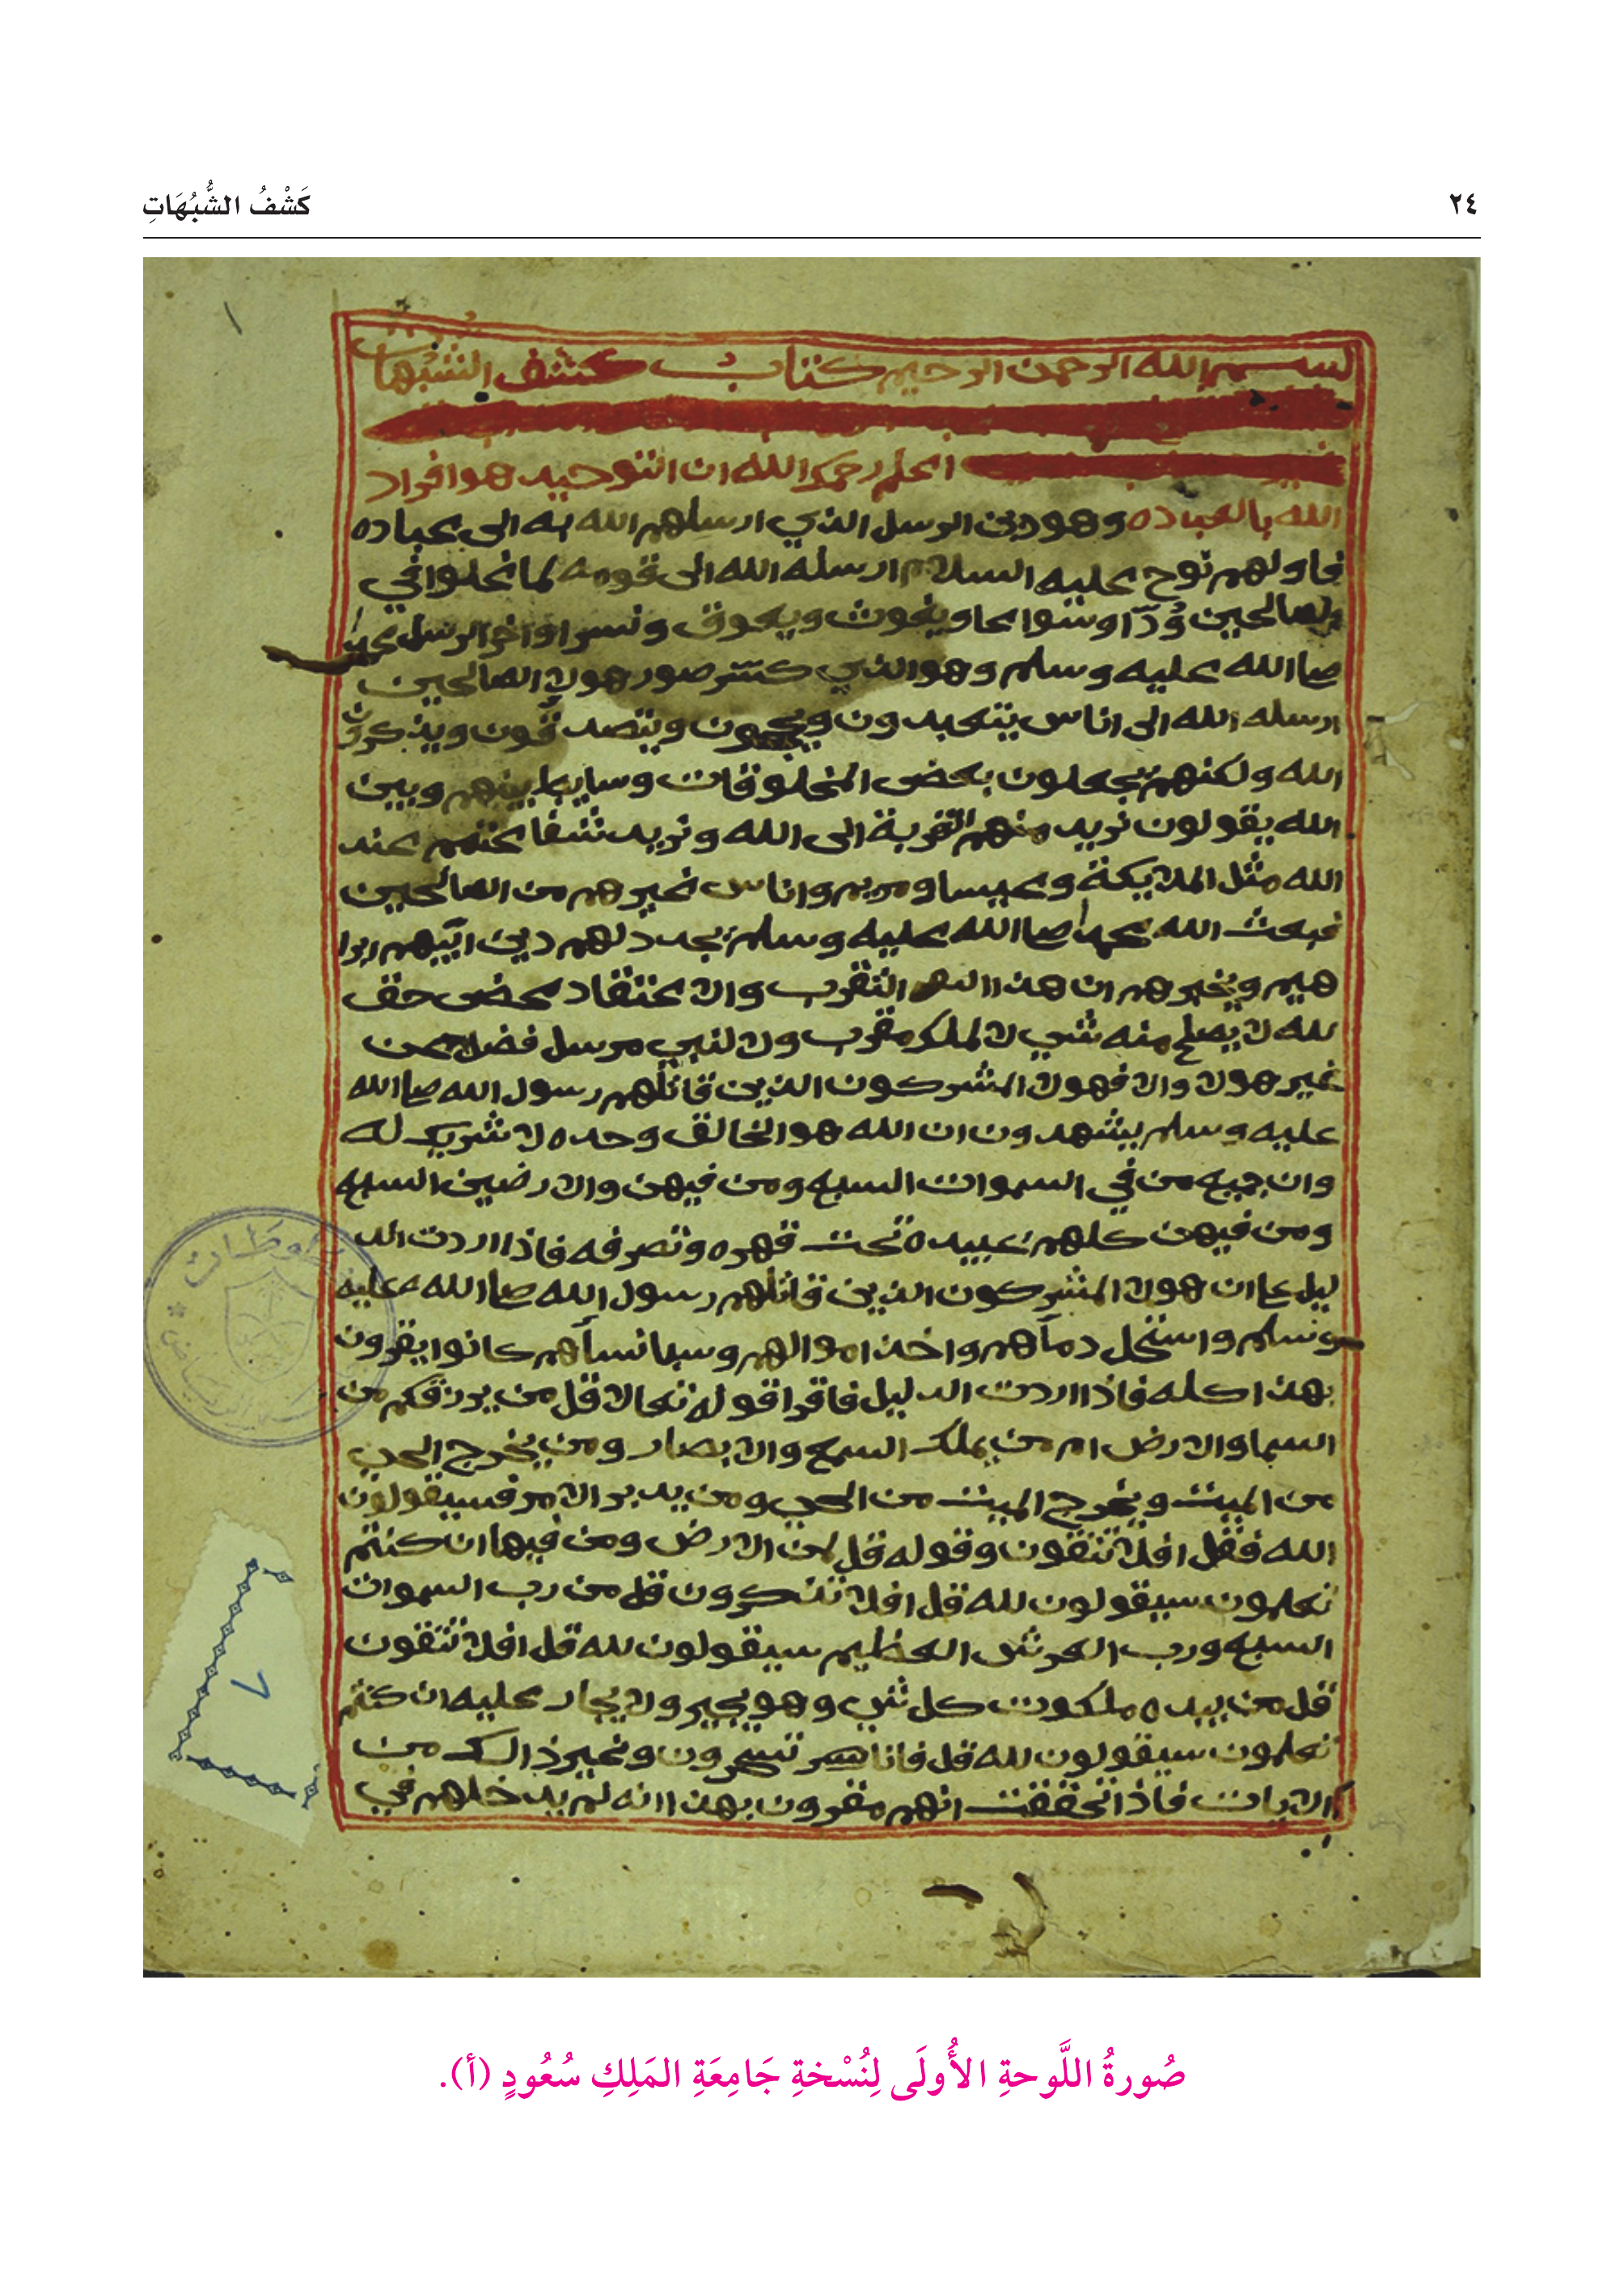 ٢٤
كَشْفُ الشُّبُهَاتِ
بسم الله الرحمن الرحيم كتاب كشف الشبهات
اعلم رحمك الله ان التوحيد هو افراد
الله بالعباده وهو دين الرسل الذي ارسلهم الله به الى عباده
فاولهم نوح عليه السلام ارسله الله الى قومه لما غلوا في
الصالحين وُدّا وسواعا ويغوث ويعوق ونسرا واخر الرسل محمد
صلا الله عليه وسلم وهو الذي كسّر صور هولا الصالحين
ارسله الله الى اناس يتعبدون ويحجون ويتصدقون ويذكرون
الله ولكنهم يجعلون بعض المخلوقات وسايط بينهم وبين
الله يقولون نريد منهم التقربة الى الله ونريد شفاعتهم عند
الله مثل الملايكة وعيسا ومريم واناس غيرهم من الصالحين
فبعث الله محمدا صلا الله عليه وسلم يجدد لهم دين ابيهم ابرا
هيم ويخبرهم ان هذا التقرب والاعتقاد محض حق
لله لا يصلح منه شي لا لملك مقرب ولا لنبي مرسل فضلا عن
غير هولا والا فهولا المشركون الذين قاتلهم رسول الله صلا الله
عليه وسلم يشهدون ان الله هو الخالق وحده لا شريك له
وان جميع من في السموات السبع ومن فيهن والارضين السبع
ومن فيهن كلهم عبيده تحت قهره وتصرفه فاذا اردت الد
ليل علا ان هولا المشركون الذين قاتلهم رسول الله صلا الله عليه
وسلم واستحل دمآهم واخذ اموالهم وسبا نسآهم كانوا يقرون
بهذا كله فاذا اردت الدليل فاقرا قوله تعالا قل من يرزقكم من
السما والارض ام من يملك السمع والابصار ومن يخرج الحي
من الميت ويخرج الميت من الحي ومن يدبر الامر فسيقولون
الله فقل افلا تتقون وقوله قل لمن الارض ومن فيها ان كنتم
تعلمون سيقولون لله قل افلا تذكرون قل من رب السموات
السبع ورب العرش العظيم سيقولون لله قل افلا تتقون
قل من بيده ملكوت كل شي وهو يجير ولا يجار عليه ان كنتم
تعلمون سيقولون لله قل فانا تسحرون وغير ذالك من
الايات فاذا تحققت انهم مقرون بهذا انه لم يدخلهم في
٧
صُورةُ اللَّوحةِ الأُولَى لِنُسْخةِ جَامِعَةِ المَلِكِ سُعُودٍ (أ).